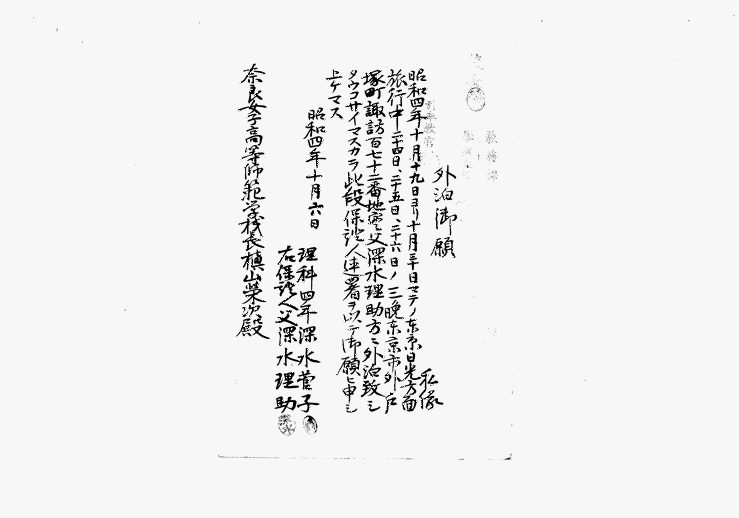 外泊御願
私儀
昭和四年十月十九日ヨリ十月三十日マデノ東京日光方面
旅行中二十四日、二十五日、二十六日ノ三晩東京市外戸
塚町諏訪百七十二番地 父深水理助方ニ外泊致シ
タウゴサイマスカラ此段保證人連署ヲ以テ御願ヒ申シ
上ゲマス
昭和四年十月六日
理科四年深水菅子
右保證人父深水理助
奈良女子高等師範学校長槙山榮次殿